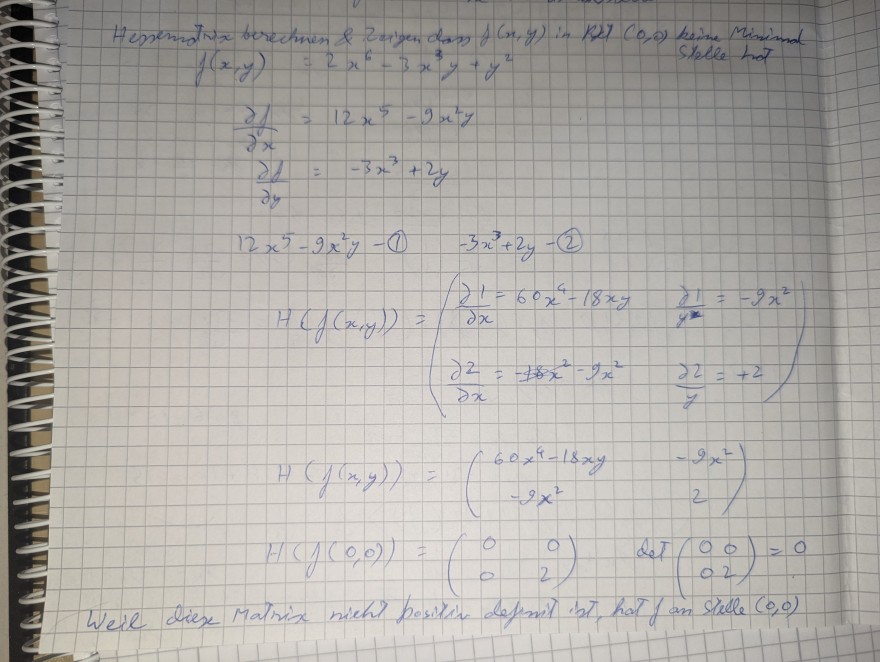 Hessematrix berechnen & Zeigen dass f(x,y) in (0,0) keine Minimal
Stelle hat
f(x,y) = 2x⁶ - 3x³y + y²
∂f/∂x = 12x⁵ - 9x²y
∂f/∂y = -3x³ + 2y
12x⁵ - 9x²y - ① -3x³ + 2y - ②
∂1/∂x = 60x⁴ - 18xy ∂1/y = -9x²
H(f(x,y)) =
∂2/∂x = -9x² ∂2/y = +2
H(f(x,y)) = ( 60x⁴ - 18xy -9x²
-9x² 2 )
H(f(0,0)) = ( 0 0 det ( 0 0 = 0
0 2 ) 0 2 )
Weil diese Matrix nicht positiv definit ist, hat f an Stelle (0,0)